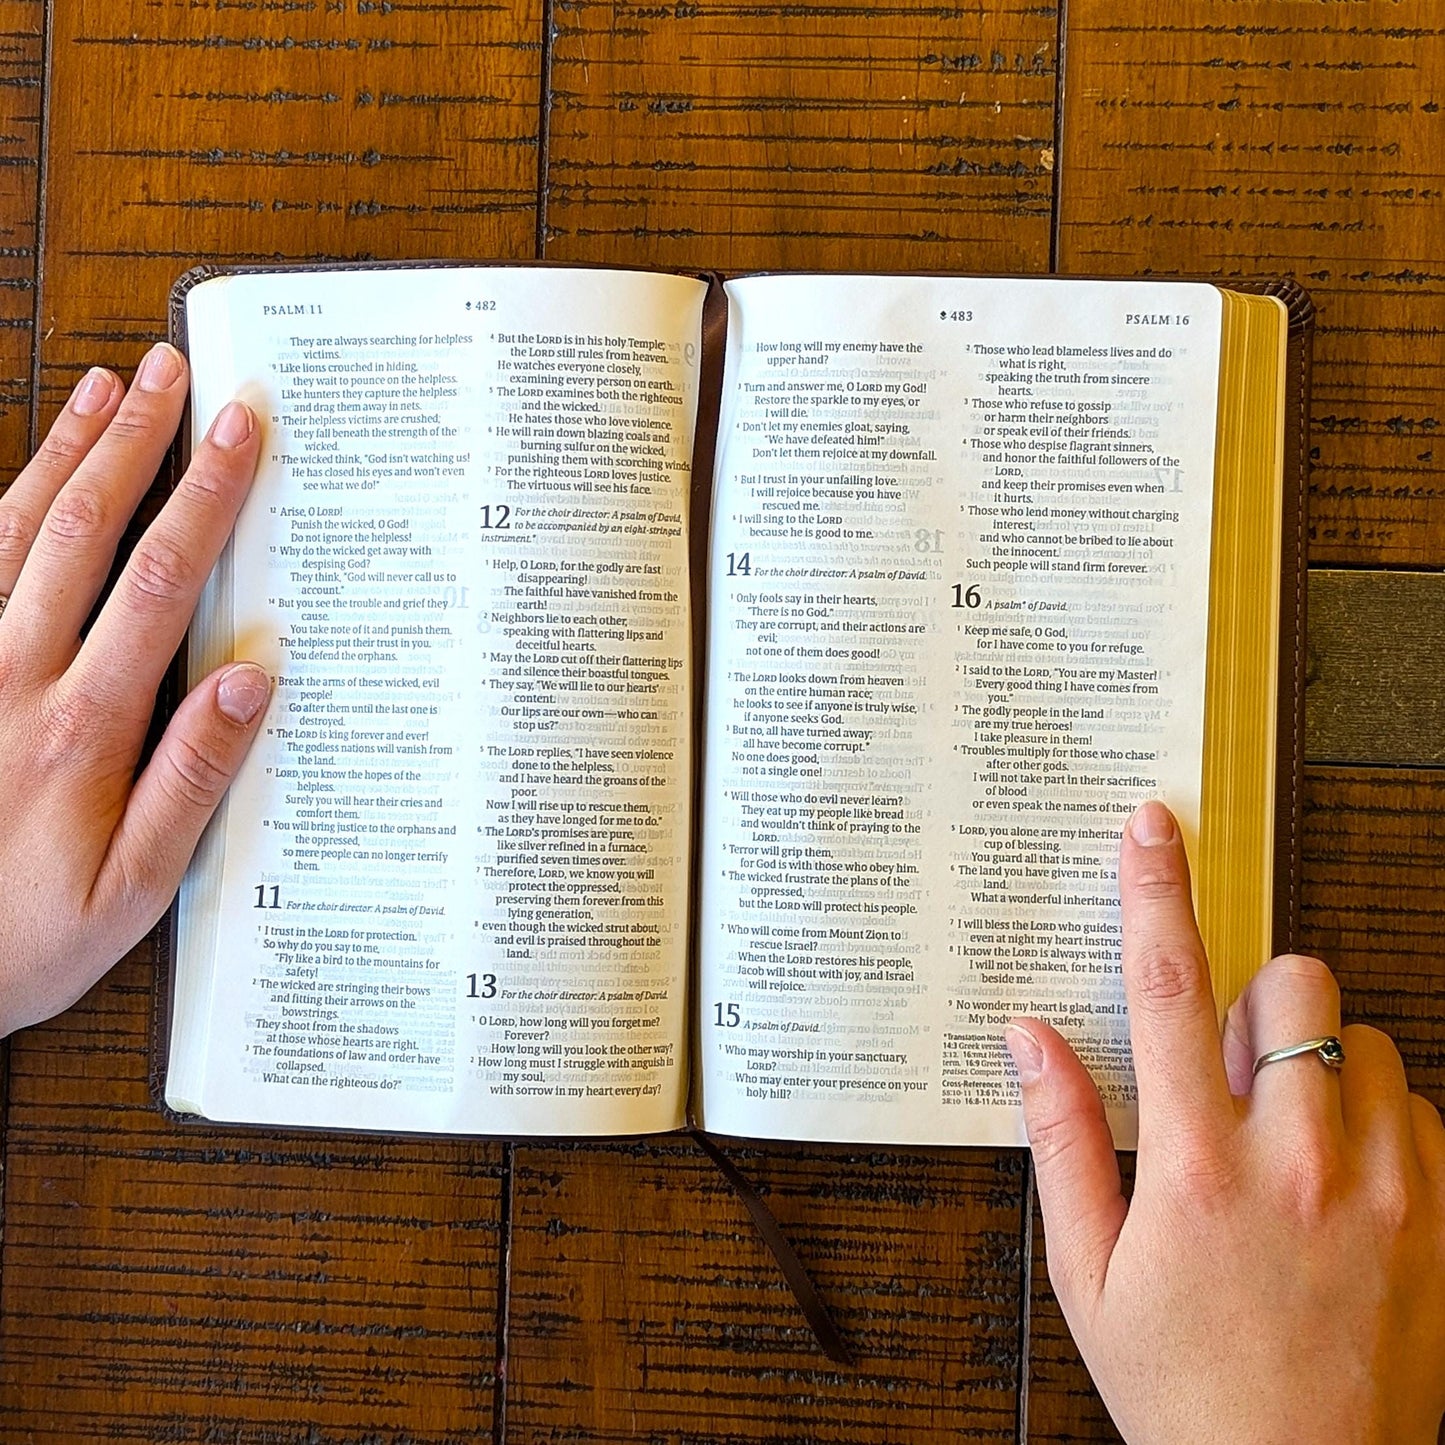 PSALM 11
482
They are always searching for helpless
victims.
9 Like lions crouched in hiding,
they wait to pounce on the helpless.
Like hunters they capture the helpless
and drag them away in nets.
10 Their helpless victims are crushed;
they fall beneath the strength of the
wicked.
11 The wicked think, “God isn’t watching us!
He has closed his eyes and won’t even
see what we do!”
12 Arise, O LORD!
Punish the wicked, O God!
Do not ignore the helpless!
13 Why do the wicked get away with
despising God?
They think, “God will never call us to
account.”
14 But you see the trouble and grief they
cause.
You take note of it and punish them.
The helpless put their trust in you.
You defend the orphans.
Break the arms of these wicked, evil
people!
Go after them until the last one is
destroyed.
16 The LORD is king forever and ever!
The godless nations will vanish from
the land.
17 LORD, you know the hopes of the
helpless.
Surely you will hear their cries and
comfort them.
18 You will bring justice to the orphans and
the oppressed,
so mere people can no longer terrify
them.
11 For the choir director: A psalm of David.
1 I trust in the LORD for protection.
So why do you say to me,
“Fly like a bird to the mountains for
safety!
2 The wicked are stringing their bows
and fitting their arrows on the
bowstrings.
They shoot from the shadows
at those whose hearts are right.
3 The foundations of law and order have
collapsed.
What can the righteous do?”
4 But the LORD is in his holy Temple;
the LORD still rules from heaven.
He watches everyone closely,
examining every person on earth.
5 The LORD examines both the righteous
and the wicked.
He hates those who love violence.
6 He will rain down blazing coals and
burning sulfur on the wicked,
punishing them with scorching winds.
7 For the righteous LORD loves justice.
The virtuous will see his face.
12 For the choir director: A psalm of David,
to be accompanied by an eight-stringed
instrument.*
1 Help, O LORD, for the godly are fast
disappearing!
The faithful have vanished from the
earth!
2 Neighbors lie to each other,
speaking with flattering lips and
deceitful hearts.
3 May the LORD cut off their flattering lips
and silence their boastful tongues.
4 They say, “We will lie to our hearts’
content.
Our lips are our own—who can
stop us?”
5 The LORD replies, “I have seen violence
done to the helpless,
and I have heard the groans of the
poor.
Now I will rise up to rescue them,
as they have longed for me to do.”
6 The LORD’s promises are pure,
like silver refined in a furnace,
purified seven times over.
7 Therefore, LORD, we know you will
protect the oppressed,
preserving them forever from this
lying generation,
8 even though the wicked strut about,
and evil is praised throughout the
land.
13 For the choir director: A psalm of David.
1 O LORD, how long will you forget me?
Forever?
How long will you look the other way?
2 How long must I struggle with anguish in
my soul,
with sorrow in my heart every day?
483
PSALM 16
How long will my enemy have the
upper hand?
3 Turn and answer me, O LORD my God!
Restore the sparkle to my eyes, or
I will die.
4 Don’t let my enemies gloat, saying,
“We have defeated him!”
Don’t let them rejoice at my downfall.
5 But I trust in your unfailing love.
I will rejoice because you have
rescued me.
6 I will sing to the LORD
because he is good to me.
14 For the choir director: A psalm of David.
1 Only fools say in their hearts,
“There is no God.”
They are corrupt, and their actions are
evil;
not one of them does good!
2 The LORD looks down from heaven
on the entire human race;
he looks to see if anyone is truly wise,
if anyone seeks God.
3 But no, all have turned away;
all have become corrupt.*
No one does good,
not a single one!
4 Will those who do evil never learn?
They eat up my people like bread
and wouldn’t think of praying to the
LORD.
5 Terror will grip them,
for God is with those who obey him.
6 The wicked frustrate the plans of the
oppressed,
but the LORD will protect his people.
7 Who will come from Mount Zion to
rescue Israel?
When the LORD restores his people,
Jacob will shout with joy, and Israel
will rejoice.
15 A psalm of David.
1 Who may worship in your sanctuary,
LORD?
Who may enter your presence on your
holy hill?
2 Those who lead blameless lives and do
what is right,
speaking the truth from sincere
hearts.
3 Those who refuse to gossip
or harm their neighbors
or speak evil of their friends.
4 Those who despise flagrant sinners,
and honor the faithful followers of the
LORD,
and keep their promises even when
it hurts.
5 Those who lend money without charging
interest,
and who cannot be bribed to lie about
the innocent.
Such people will stand firm forever.
16 A psalm* of David.
1 Keep me safe, O God,
for I have come to you for refuge.
2 I said to the LORD, “You are my Master!
Every good thing I have comes from
you.”
3 The godly people in the land
are my true heroes!
I take pleasure in them!
4 Troubles multiply for those who chase
after other gods.
I will not take part in their sacrifices
of blood
or even speak the names of their
5 LORD, you alone are my
cup of blessing.
You guard all that is mine.
6 The land you have given me is a
land.
What a wonderful inheritance
7 I will bless the LORD who guides
even at night my heart
8 I know the LORD is always with
I will not be shaken, for he is
beside me.
9 No wonder my heart is glad, and I
My body in safety.
*Translation Notes
14:3 Greek version
term. 16:9 Greek
praises Compare Acts
Cross-References
55:10-11 13:6 Ps 116:7
38:10 16:8-11 Acts 2:25